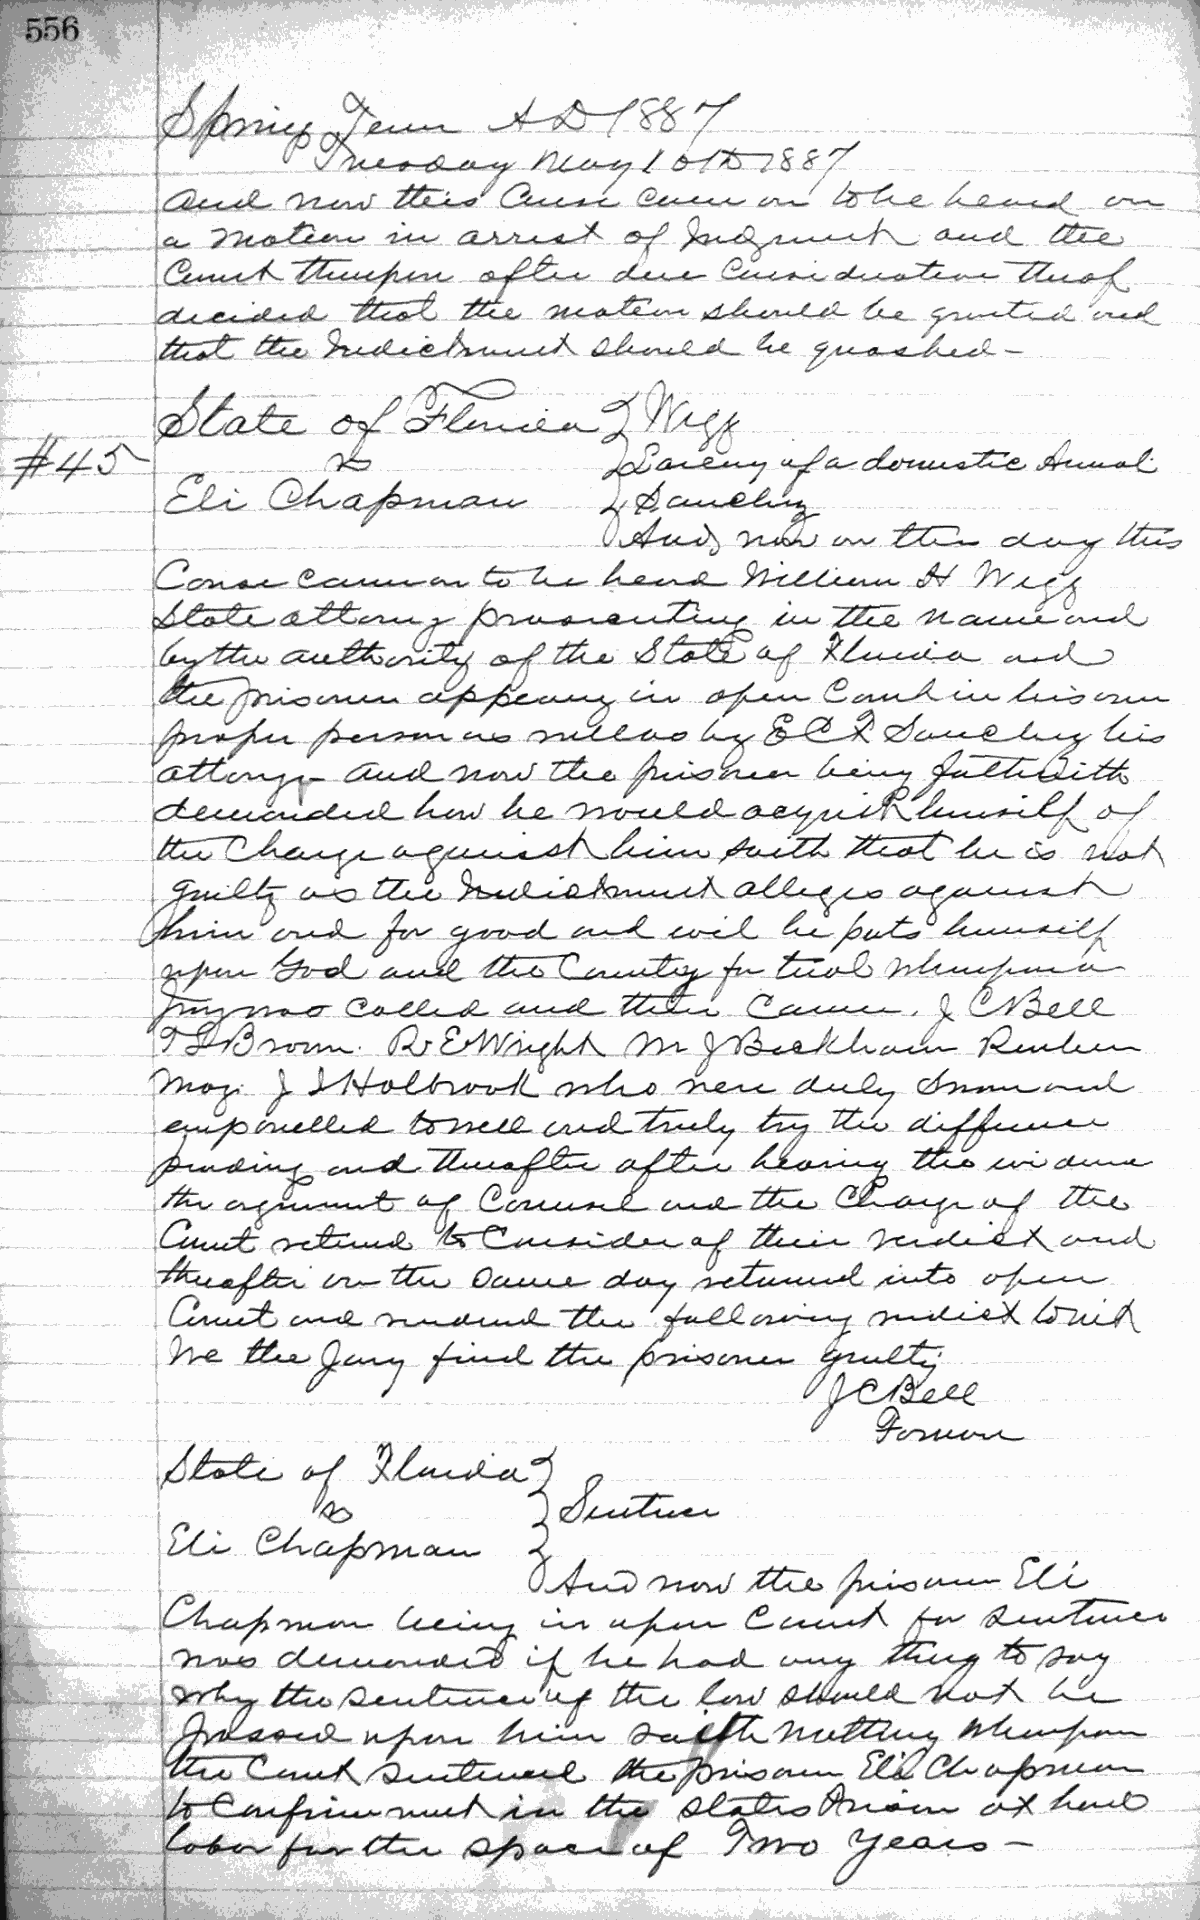 556
Spring Term A D 1887
Tuesday May 10th 1887
and now this Cause came on to be heard on
a motion in arrest of Judgment and the
Court thereupon after due Consideration thereof
decided that the motion should be granted and
that the Indictment should be quashed -
State of Florida } Wigg
#45 vs } Larceny of a domestic Animal
Eli Chapman } Sanchez
And now on this day this
Cause came on to be heard William H Wigg
State attorney prosecuting in the name and
by the authority of the State of Florida and
the prisoner appearing in open Court in his own
proper person as well as by E C F Sanchez his
attorney and now the prisoner being forthwith
demanded how he would acquit himself of
the Charge against him saith that he is not
guilty as the Indictment alleges against
him and for good and evil he puts himself
upon God and the Country for trial whereupon a
Jury was called and there came. J C Bell
T S Broom. R E Wright M J Beckham Reuben
J S Holbrook who were duly sworn and
empanelled to well and truly try the difference
pending and thereafter after hearing the evidence
the argument of Counsel and the Charge of the
Court retired to Consider of their verdict and
thereafter on the same day returned into open
Court and rendered the following verdict to wit
We the Jury find the prisoner guilty
J C Bell
Foreman
State of Florida }
vs } Sentence
Eli Chapman }
And now the prisoner Eli
Chapman being in open Court for sentence
was demanded if he had any thing to say
why the sentence of the law should not be
passed upon him saith nothing whereupon
the Court sentenced the prisoner Eli Chapman
to Confinement in the States Prison at hard
labor for the space of Two Years -